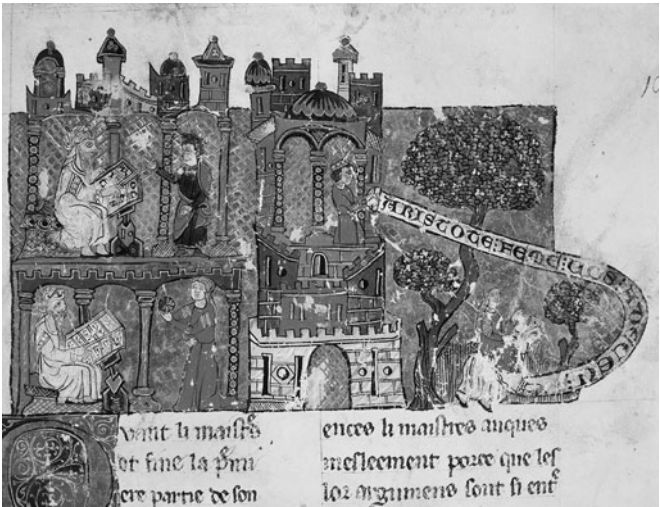 ARISTOTE: FEME: UOS:
uant li maistres
ot fine la pmi
ere partie de son
ences li maistres auques
mesleement porce que les
lor argumens sont si ent